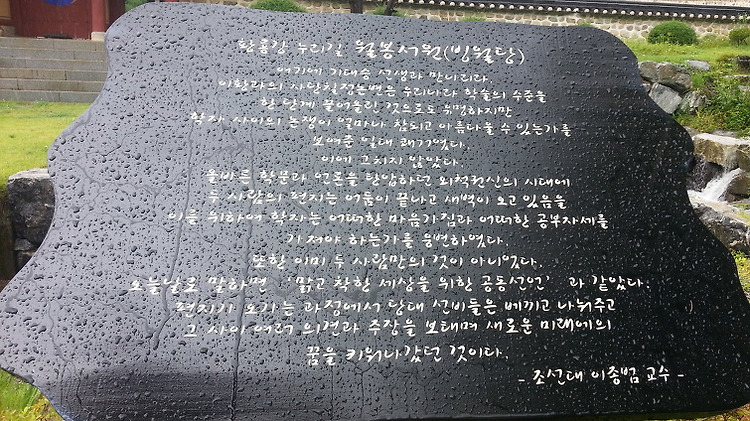 황룡강 누리길 월봉서원(빙월당)
여기에 기대승 선생과 만나리라.
이황과의 사단칠정논변은 우리나라 학술의 수준을
한 단계 끌어올린 것으로도 유명하지만
학자 사이의 논쟁이 얼마나 참되고 아름다울 수 있는가를
보여준 일대 쾌거였다.
이에 그치지 않았다.
올바른 학문과 언론을 탄압하던 외척권신의 시대에
두 사람의 편지는 어둠이 끝나고 새벽이 오고 있음을
이를 위하여 학자는 어떠한 마음가짐과 어떠한 공부자세를
가져야 하는가를 웅변하였다.
또한 이미 두 사람만의 것이 아니었다.
오늘날로 말하면 '맑고 착한 세상을 위한 공동선언' 과 같았다.
편지가 오가는 과정에서 당대 선비들은 베끼고 나눠주고
그 사이 여러 의견과 주장을 보태며 새로운 미래에의
꿈을 키워나갔던 것이다.
- 조선대 이종범 교수 -